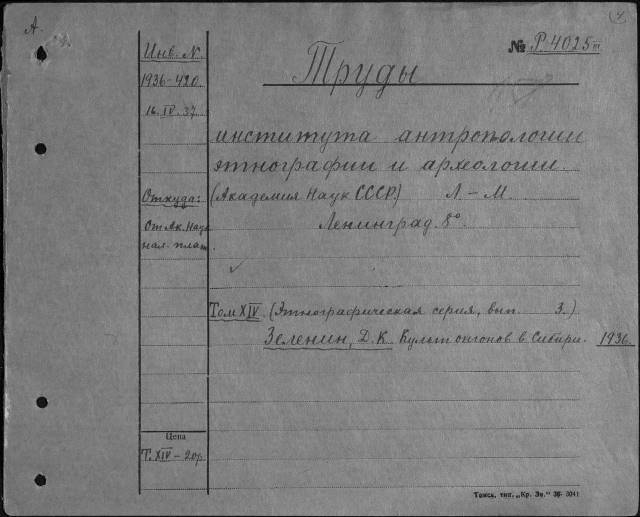 А.
4
Инв. N.
1936-420.
16.IV.37.
№ Р-4025 III
Труды
института антропологии
этнографии и археологии.
Откуда:
(Академия Наук СССР) Л.-М.
От Ак. Наук
нал. плат.
Ленинград. 8°.
Том XIV. (Этнографическая серия, вып. 3.)
Зеленин, Д.К. Культ онгонов в Сибири. 1936.
Цена
Т. XIV - 20р.
Томск. тип. „Кр. Зн." 36- 3041